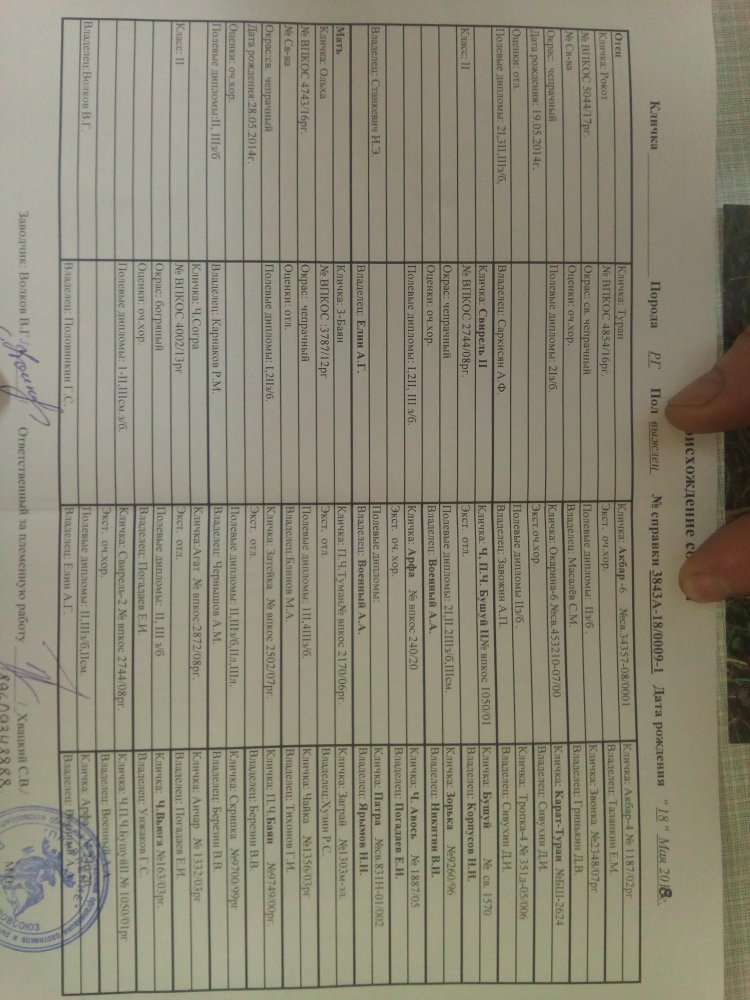 Происхождение со
Кличка Порода РГ Пол выжлец № справки 3843А-18/0009-1 Дата рождения "18" Мая 2018
Отец
Кличка: Рокот
№ ВПКОС 5044/17рг.
№ Св-ва
Окрас: чепрачный
Дата рождения: 19.05.2014г.
Оценки: отл.
Полевые дипломы: 2I,3II,IIIз/б,
Класс: II
Владелец: Станкевич И.Э.
Мать
Кличка: Ольха
№ ВПКОС 4743/16рг.
№ Св-ва
Окрас:св. чепрачный
Дата рождения:28.05.2014г.
Оценки: оч.хор.
Полевые дипломы:II, IIIз/б
Класс: II
Владелец:Волков В.Г
Кличка: Туран
№ ВПКОС 4854/16рг.
Окрас: св. чепрачный
Оценки: оч.хор.
Полевые дипломы: 2Iз/б.
Владелец: Саркисян А.Ф.
Кличка: Свирель II
№ ВПКОС 2744/08рг.
Окрас: чепрачный
Оценки: оч.хор.
Полевые дипломы: I,2II, III з/б.
Владелец: Елин А.Г.
Кличка: 3-Баян
№ ВПКОС 3787/12рг
Окрас: чепрачный
Оценки: отл.
Полевые дипломы: I,2IIз/б.
Владелец: Карнаков Р.М.
Кличка: Ч.Согра
№ ВПКОС 4002/13рг
Окрас: багряный
Оценки: оч.хор.
Полевые дипломы: 1-II,IIIсм з/б.
Владелец: Половинкин Г.С.
Кличка: Акбар -6 №св.34357-08/0001
Экст. оч.хор.
Полевые дипломы: IIз/б
Владелец: Масалёв С.М.
Кличка: Окарина-6 №св.453210-07/00
Экст оч.хор.
Полевые дипломы IIз/б
Владелец: Завожин А.П.
Кличка: Ч. П.Ч. Бушуй II№ впкос 1050/01
Экст. отл.
Полевые дипломы: 2I,II.2IIIз/б,IIIсм.
Владелец: Военный А.А.
Кличка: Арфа № впкос 240/20
Экст. оч. хор.
Полевые дипломы:
Владелец: Военный А.А.
Кличка: П.Ч.Туман№ впкос 2170/06рг.
Экст. отл.
Полевые дипломы: III,4IIIз/б.
Владелец:Блинов М.А.
Кличка: Затейка № впкос 2502/07рг.
Экст. отл.
Полевые дипломы: II,IIIз/б,IIл,IIIл.
Владелец: Чернышов А.М.
Кличка:Агат № впкос 2872/08рг.
Экст отл.
Полевые дипломы: II, III з/б
Владелец: Погадаев Е.И.
Кличка: Свирель-2 № впкос 2744/08рг.
Экст. оч.хор.
Полевые дипломы: II,IIIз/б,IIсм.
Владелец: Елин А.Г.
Кличка: Акбар-4 № 1187/02рг.
Владелец: Таланкин Е.М.
Кличка: Звонка №2348/07рг.
Владелец: Гринькин Д.В.
Кличка: Карат-Туран №БШ-2624
Владелец: Сивухин Д.И.
Кличка: Тропка-4 № 351д-05/006
Владелец: Сивухин Д.И.
Кличка: Бушуй № св. 1570
Владелец: Корпусов Н.И.
Кличка: Зорька №9260/96
Владелец: Никитин В.И.
Кличка: Ч. Авось № 1887/05
Владелец: Погадаев Е.И
Кличка: Патра №св.831Н-01/002
Владелец: Ярымов Н.Н.
Кличка: Заграй №1303м-эл.
Владелец:Хузин Р.С.
Кличка: Чайка №1356/03рг.
Владелец: Тихонов Г.И.
Кличка: П.Ч.Баян №9749/00рг
Владелец: Березин В.В.
Кличка: Скрипка №9700/99рг
Владелец: Березин В.В.
Кличка: Анчар № 1332/03рг.
Владелец: Погадаев Е.И.
Кличка: Ч.Вьюга №163/03рг.
Владелец: Унжаков Г.С.
Кличка: Ч.П.Ч.БушуйII № 1050/01рг
Владелец: Военный А.А.
Кличка: Арфа
Владелец: Военный
Заводчик: Волков В.Г. Ответственный за племенную работу / Хвацкий С.В./
89609348888